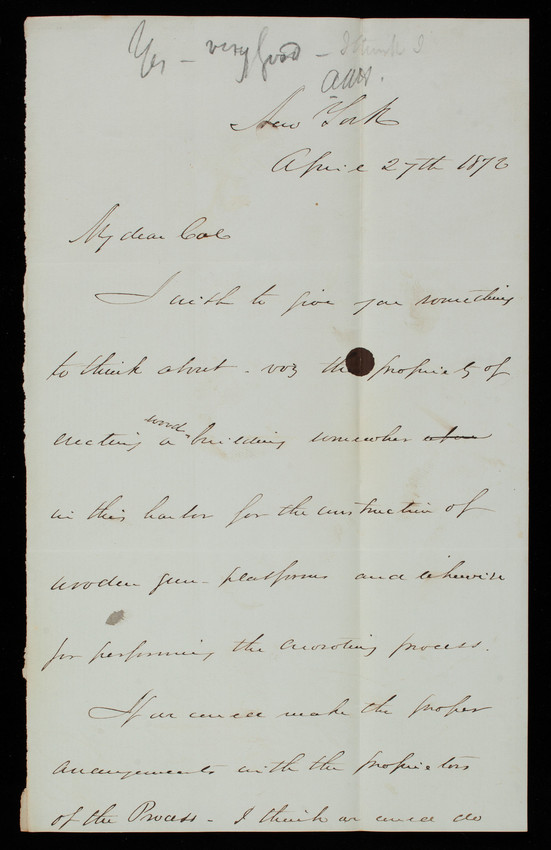 Yes - very good - I think I
New York
April 27th 1872
My dear Col
I wish to give you something
to think about - viz the propriety of
wood
erecting a building somewher
in this harbor for the construction of
wooden gun-platforms and likewise
for performing the creosoting process.
If we could make the proper
arrangements with the proprietors
of the Process - I think we could do